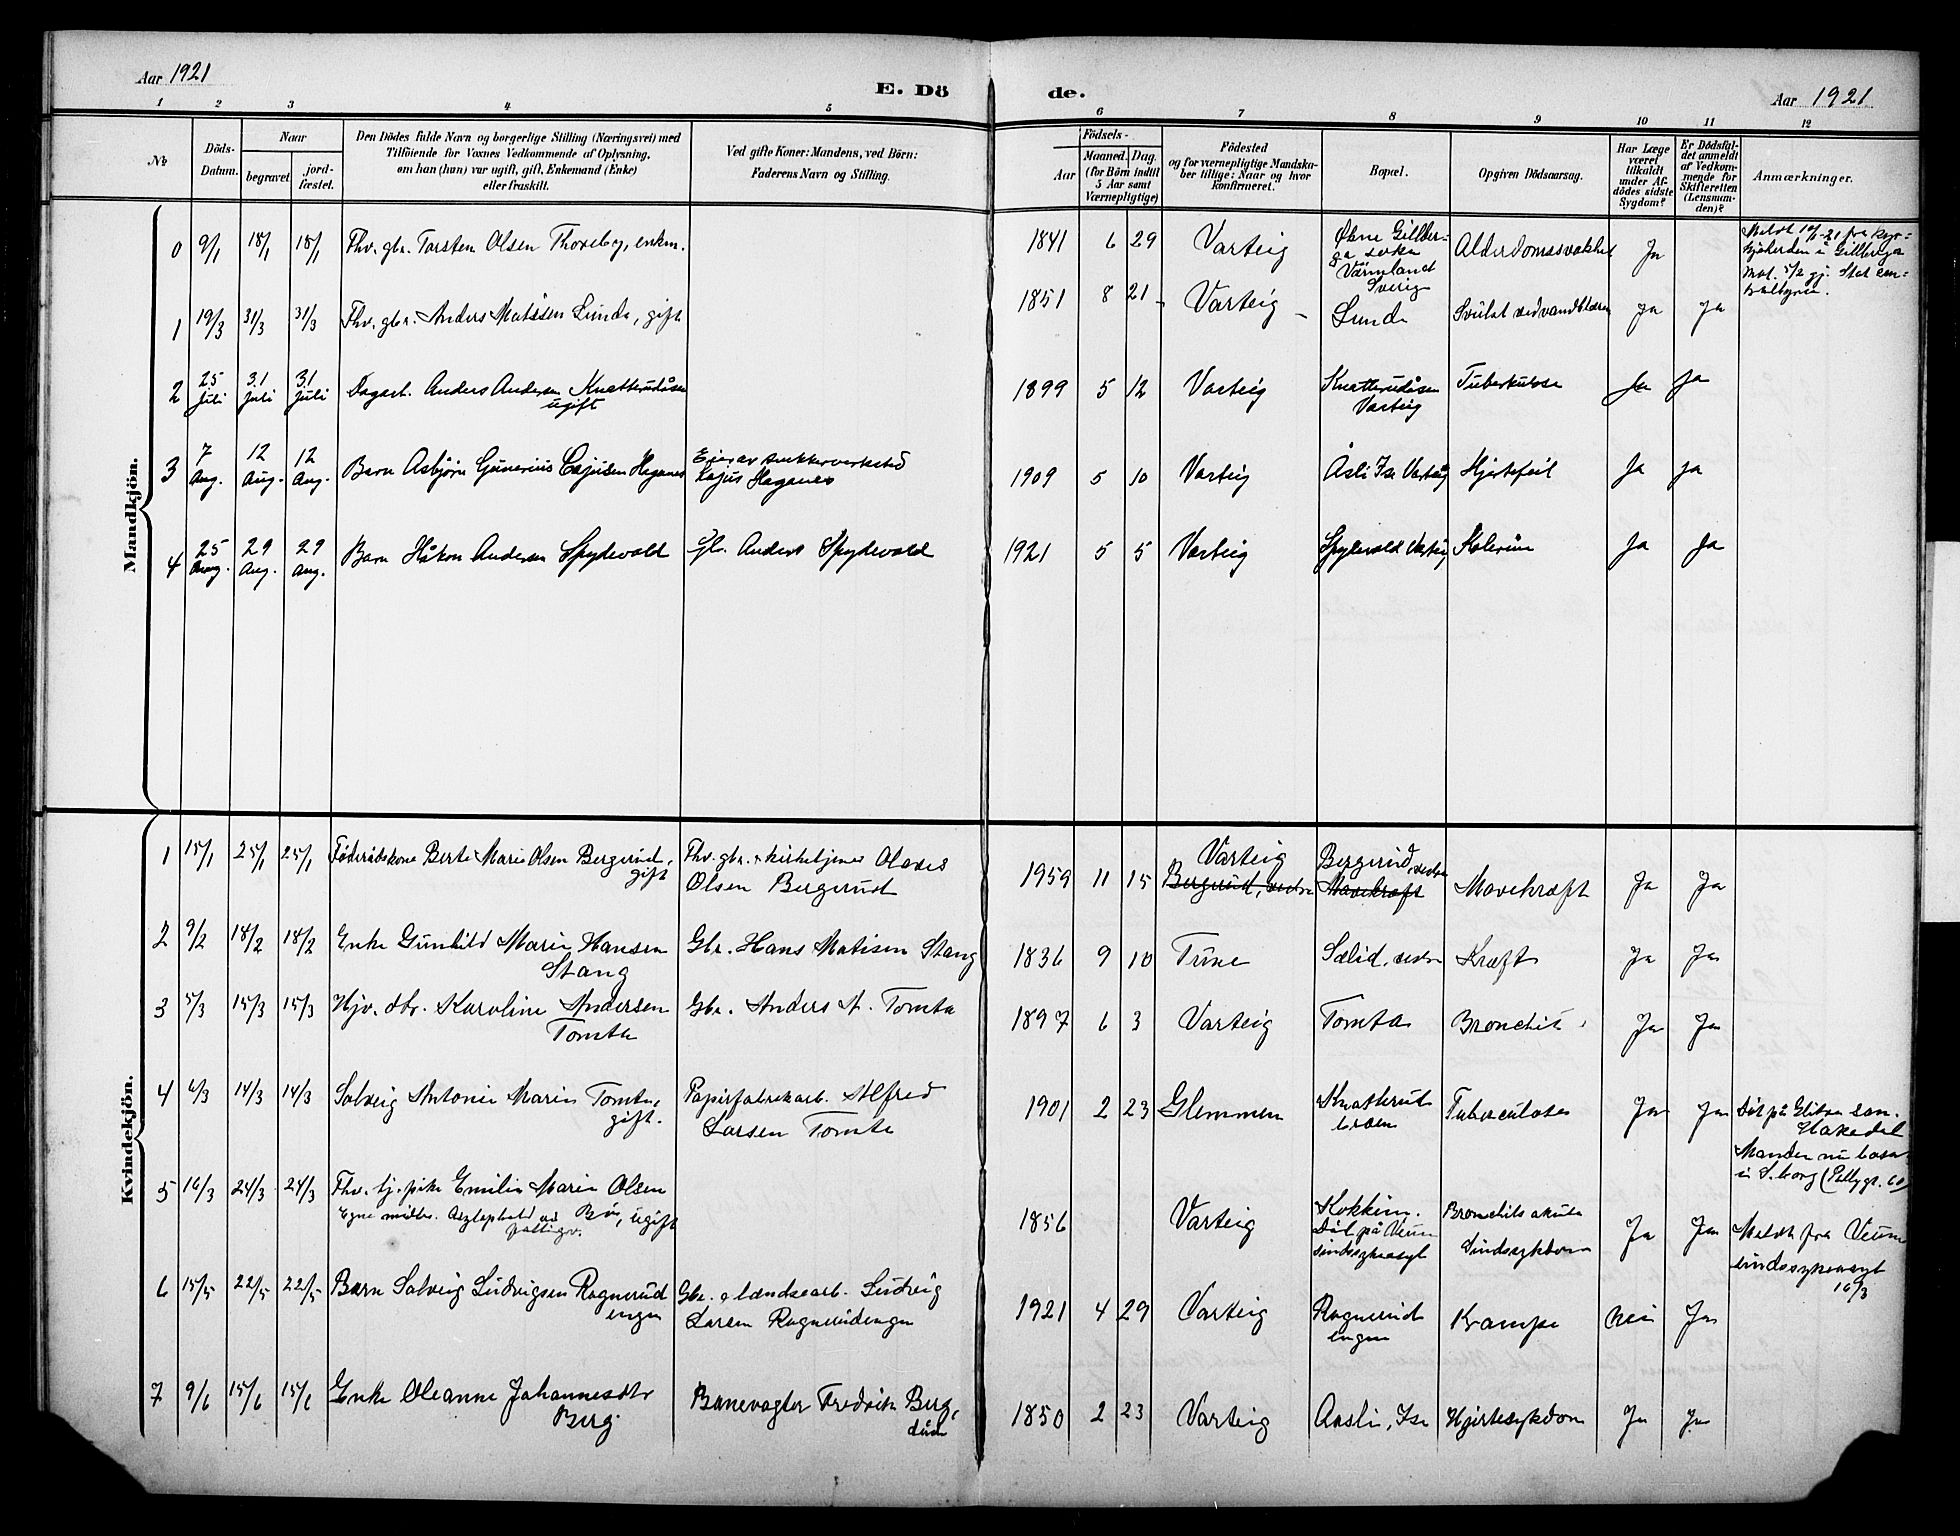 Aar 1921
E. Dö
de.
Aar 1921
1 2 3 4 5 6 7 8 9 10 11 12
No
Döds-
Datum.
Naar
begravet.
jord-
fæstet.
Den Dödes fulde Navn og borgerlige Stilling (Næringsvei) med
Tilföiende for Voxnes Vedkommende af Oplysning,
om han (hun) var ugift, gift, Enkemand (Enke)
eller fraskilt.
Ved gifte Koner: Mandens, ved Börn:
Faderens Navn og Stilling.
Födsels-
Aar
Maaned.
Dag.
(for Börn indtil
5 Aar samt
Værnepligtige)
Födested
og for værnepligtige Mandska-
ber tillige: Naar og hvor
konfirmeret.
Bopæl.
Opgiven Dödsaarsag.
Har Læge
været
tilkaldt
under Af-
dödes sidste
Sygdom?
Er Dödsfal-
det anmeldt
af Vedkom-
mende for
Skifteretten
(Lensman-
den)?
Anmærkninger.
Mandkjön.
0 9/1 18/1 18/1 Fhv. gbr. Torsten Olsen Thoreby, enkem. 1841 6 29 Varteig
Värmland
Sverig
Alderdomssvakhet Ja
1 19/3 31/3 31/3 Fhv. gbr. Anders Matisen Lunde, gift 1851 8 21 Varteig Lunde Svulst ved vandblæren Ja Ja
2 25 Juli 31 Juli 31 Juli Dagarb. Anders Andersen Knatterudåsen
ugift
1899 5 12 Varteig Knatterudåsen
Varteig
Tuberkulose Ja Ja
3 7 Aug. 12 Aug. 12 Aug. Barn Asbjørn Gunerius Cajusen Haganes
Eier av snekkerverksted
Kajus Haganes
1909 5 10 Varteig Åsli Ise Varteig Hjertefeil Ja Ja
4 25 Aug. 29 Aug. 29 Aug. Barn Håkon Andersen Spydevold Gbr. Anders Spydevold 1921 5 5 Varteig Spydevold Varteig Kolerine Ja Ja
Kvindekjön.
1 15/1 25/1 25/1 Føderådskone Berte Marie Olsen Bergerud,
gift
Fhv. gbr. & kirketjener Olaves
Olsen Bergerud
1959 11 15 Varteig
Bergerud, vestre
Bergerud, vestre
Mavekræft
Mavekræft Ja Ja
2 9/2 18/2 18/2 Enke Gunhild Marie Hansen
Stang
Gbr. Hans Matisen Stang
1836 9 10 Tune Sælid, vestre Kræft Ja Ja
3 5/3 15/3 15/3 Hjv. dtr. Karoline Andersen
Tomta
Gbr. Anders A. Tomta
1897 6 3 Varteig Tomta Bronchit Ja Ja
4 6/3 14/3 14/3 Solveig Antonie Marie Tomta,
gift.
Papirfabrikarb. Alfred
Larsen Tomta
1901 2 23 Glemmen Knatterud
Tuberculose Ja Ja Død på Glitre san.
Hakedal
Manden nu bosa
i S.borg
5 16/3 24/3 24/3 Fhv. tj. pike Emilie Marie Olsen
Bø, ugift
Egne midler.
1856 Varteig Kokkim.
Død på Veum
sindssykeasyl
Bronchitis akuta
Sindssykdom
Ja Ja Meldt fra Veum
sindssykeasyl
16/3
6 15/5 22/5 22/5 Barn Solveig Ludvigsen Ragnerud
engen
Gbr. & lændsearb. Ludvig
Larsen Ragnerudengen
1921 4 29 Varteig Ragnerud
engen
Krampe Nei Ja
7 9/6 15/6 15/6 Enke Oleanne Johannesdtr
Berg.
Banevogter Fredrik Berg,
død
1850 2 23 Varteig Aasli, Ise Hjertesykdom Ja Ja